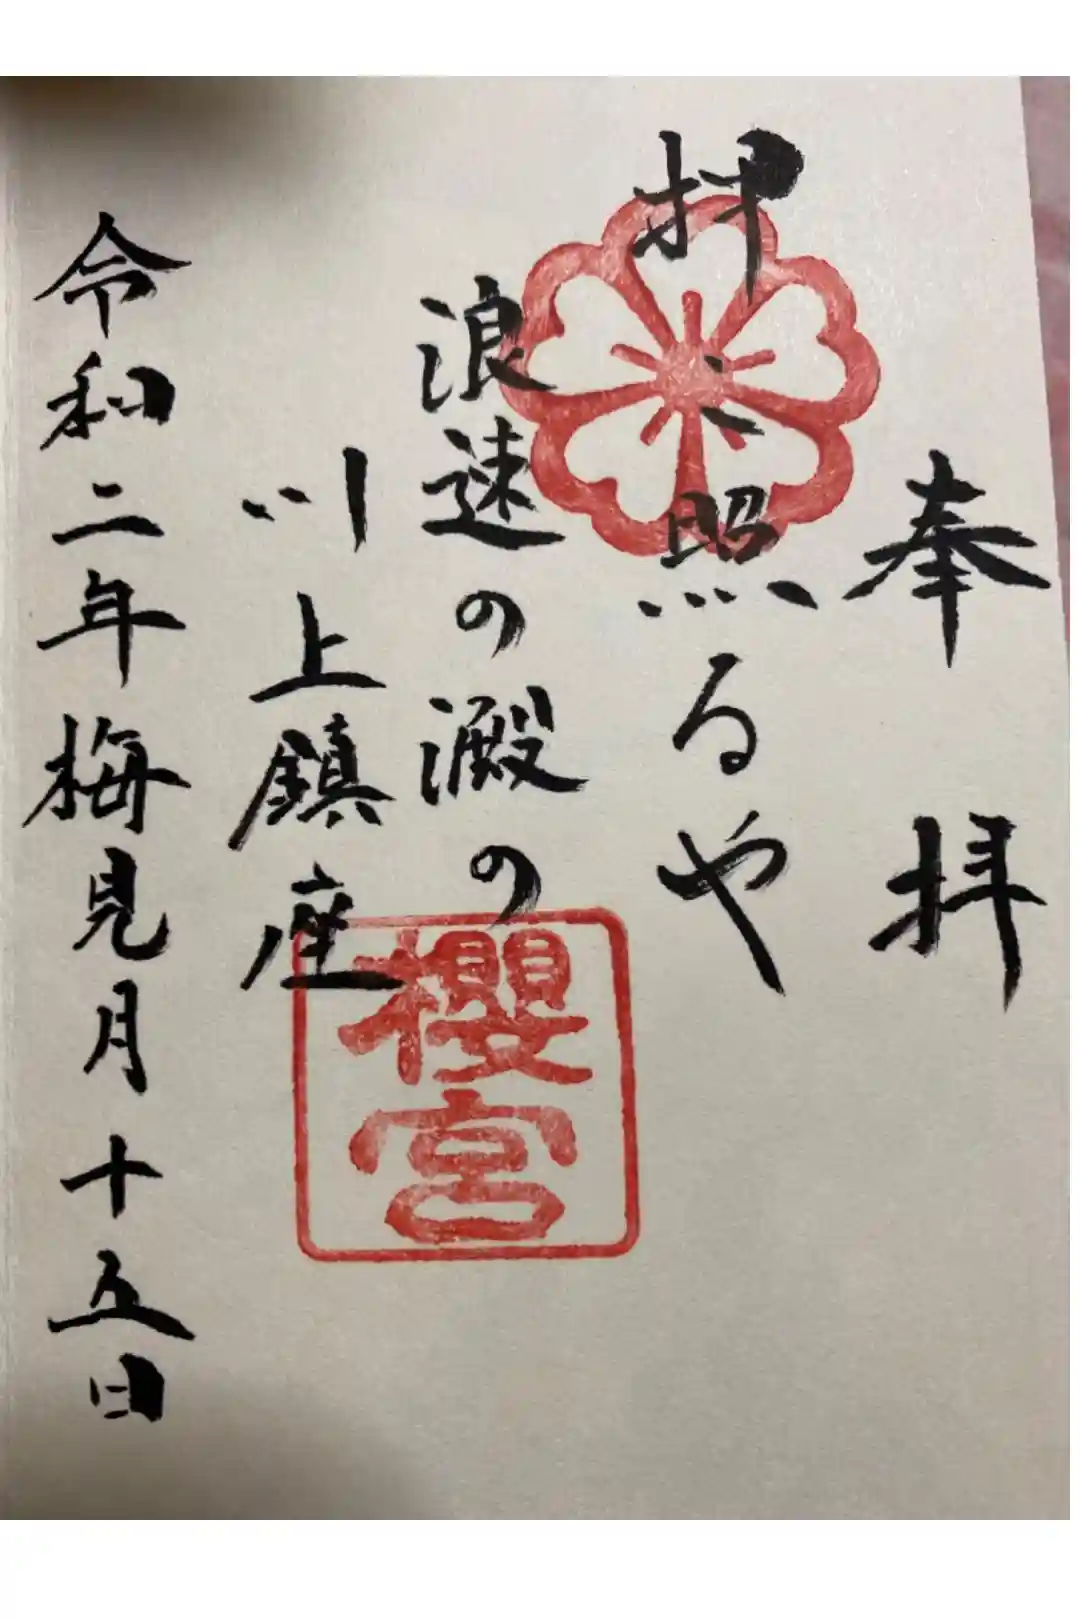 奉拝
押照るや
浪速の澱の
川上鎮座
令和二年梅見月十五日
櫻宮